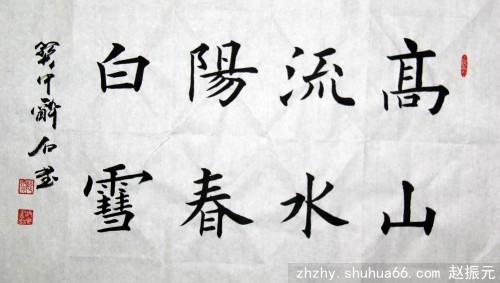 髙山
流水
陽春
白雪
zhzhy.shuhua66.com 赵振元